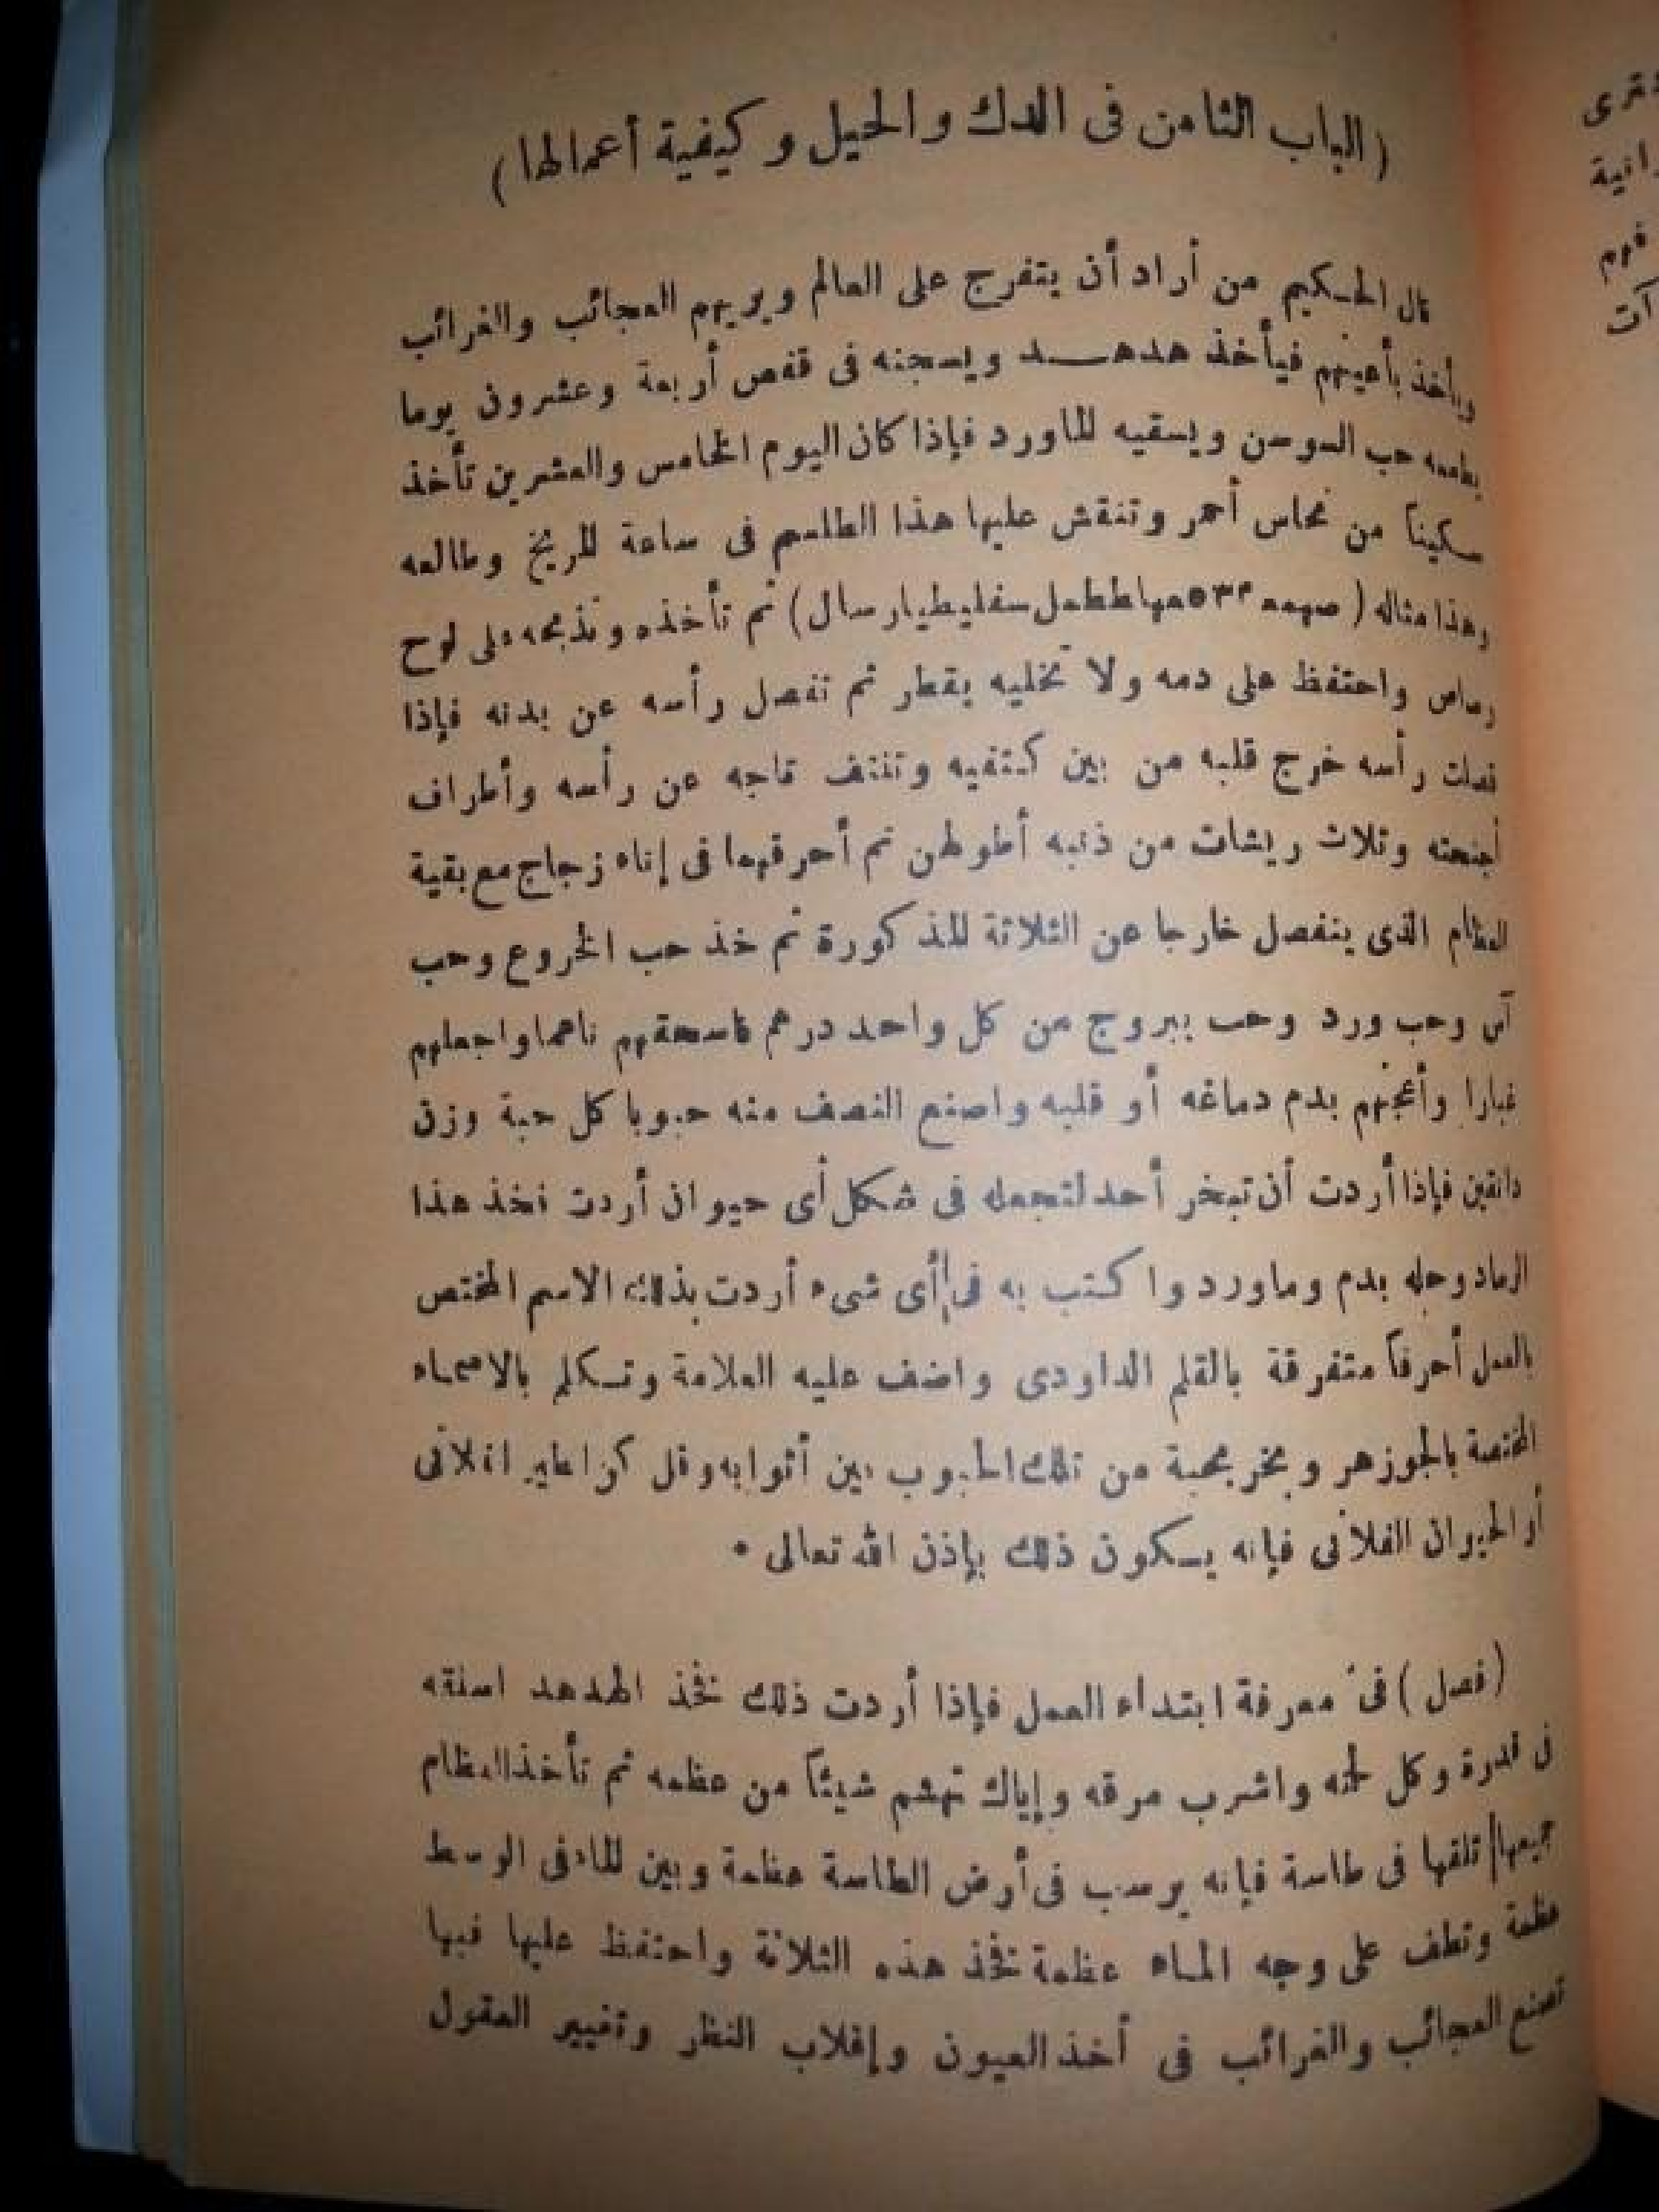 (الباب الثامن فى الدك والحيل وكيفية أعمالها)
قال الحكيم من أراد أن يتفرج على العالم ويريهم العجائب والغرائب
ويأخذ بأعينهم فيأخذ هدهد ويسجنه فى قفص أربعة وعشرون يوما
يطعمه حب السوسن ويسقيه الماورد فإذا كان اليوم الخامس والعشرين تأخذ
سكيناً من نحاس أحمر وتنقش عليها هذا الطلسم فى ساعة المريخ وطالعه
وهذا مثاله ( ) ثم تأخذه وتذبحه على لوح
رصاص واحتفظ على دمه ولا تخليه يقطر ثم تفصل رأسه عن بدنه فإذا
فصلت رأسه خرج قلبه من بين كتفيه وتنتف تاجه عن رأسه وأطراف
أجنحته وثلاث ريشات من ذنبه أطولهن ثم أحرقهما فى إناء زجاج مع بقية
العظام الذى ينفصل خارجا عن الثلاثة المذكورة ثم خذ حب الخروع وحب
آس وحب ورد وحب يبروج من كل واحد درهم فاسحقهم ناعما واجعلهم
غبارا وأعجنهم بدم دماغه أو قلبه واصنع النصف منه حبوبا كل حبة وزن
دانقين فإذا أردت أن تبخر أحد لتجعله فى شكل أى حيوان أردت نخذ هذا
الرماد وحله بدم وماورد واكتب به فى أى شىء أردت بذلك الاسم المختص
بالعمل أحرفاً متفرقة بالقلم الداودى واضف عليه العلامة وتكلم بالاسماء
المختصة بالجوزهر وبخر بحبة من تلك الحبوب بين أثوابه وقل كن اطير الفلانى
أو الحيوان الفلانى فإنه يكون ذلك بإذن الله تعالى •
(فصل) فى معرفة ابتداء العمل فإذا أردت ذلك نخذ الهدهد اسلقه
فى قدرة وكل لحمه واشرب مرقه وإياك تهشم شيئاً من عظمه ثم تأخذ العظام
جميعها تلقها فى طاسة فإنه يرسب فى أرض الطاسة عظمة وبين الماء فى الوسط
عظمة وتطف على وجه الماء عظمة نخذ هذه الثلاثة واحتفظ عليها فبها
تصنع العجائب والغرائب فى أخذ العيون وإقلاب النظر وتغيير العقول
فترى
رانية
فهم
آت